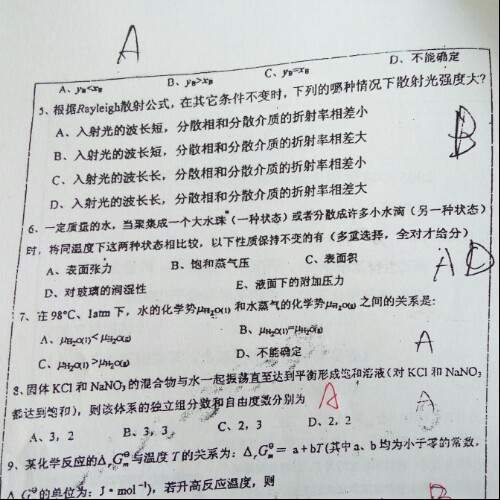 A
A、y_B<x_B B、y_B>x_B C、y_B=x_B D、不能确定
5、根据Rayleigh散射公式，在其它条件不变时，下列的哪种情况下散射光强度大?
A、入射光的波长短，分散相和分散介质的折射率相差小
B、入射光的波长短，分散相和分散介质的折射率相差大
B
C、入射光的波长长，分散相和分散介质的折射率相差小
D、入射光的波长长，分散相和分散介质的折射率相差大
6、一定质量的水，当聚集成一个大水珠（一种状态）或者分散成许多小水滴（另一种状态）
时，将同温度下这两种状态相比较，以下性质保持不变的有（多重选择，全对才给分）
A、表面张力 B、饱和蒸气压 C、表面积
AD
D、对玻璃的润湿性 E、液面下的附加压力
7、在98℃、1atm下，水的化学势μH₂O(l)和水蒸气的化学势μH₂O(g)之间的关系是:
A、μH₂O(l)<μH₂O(g) B、μH₂O(l)=μH₂O(g)
C、μH₂O(l)>μH₂O(g) D、不能确定
A
8、固体KCl和NaNO₃的混合物与水一起振荡直至达到平衡形成饱和溶液(对KCl和NaNO₃
都达到饱和)，则该体系的独立组分数和自由度数分别为 A
A、3，2 B、3，3 C、2，3 D、2，2
9、某化学反应的ΔrGmᶱ与温度T的关系为：ΔrGmᶱ= a+bT(其中a、b均为小于零的常数，
Gmᶱ的单位为：J·mol⁻¹)，若升高反应温度，则